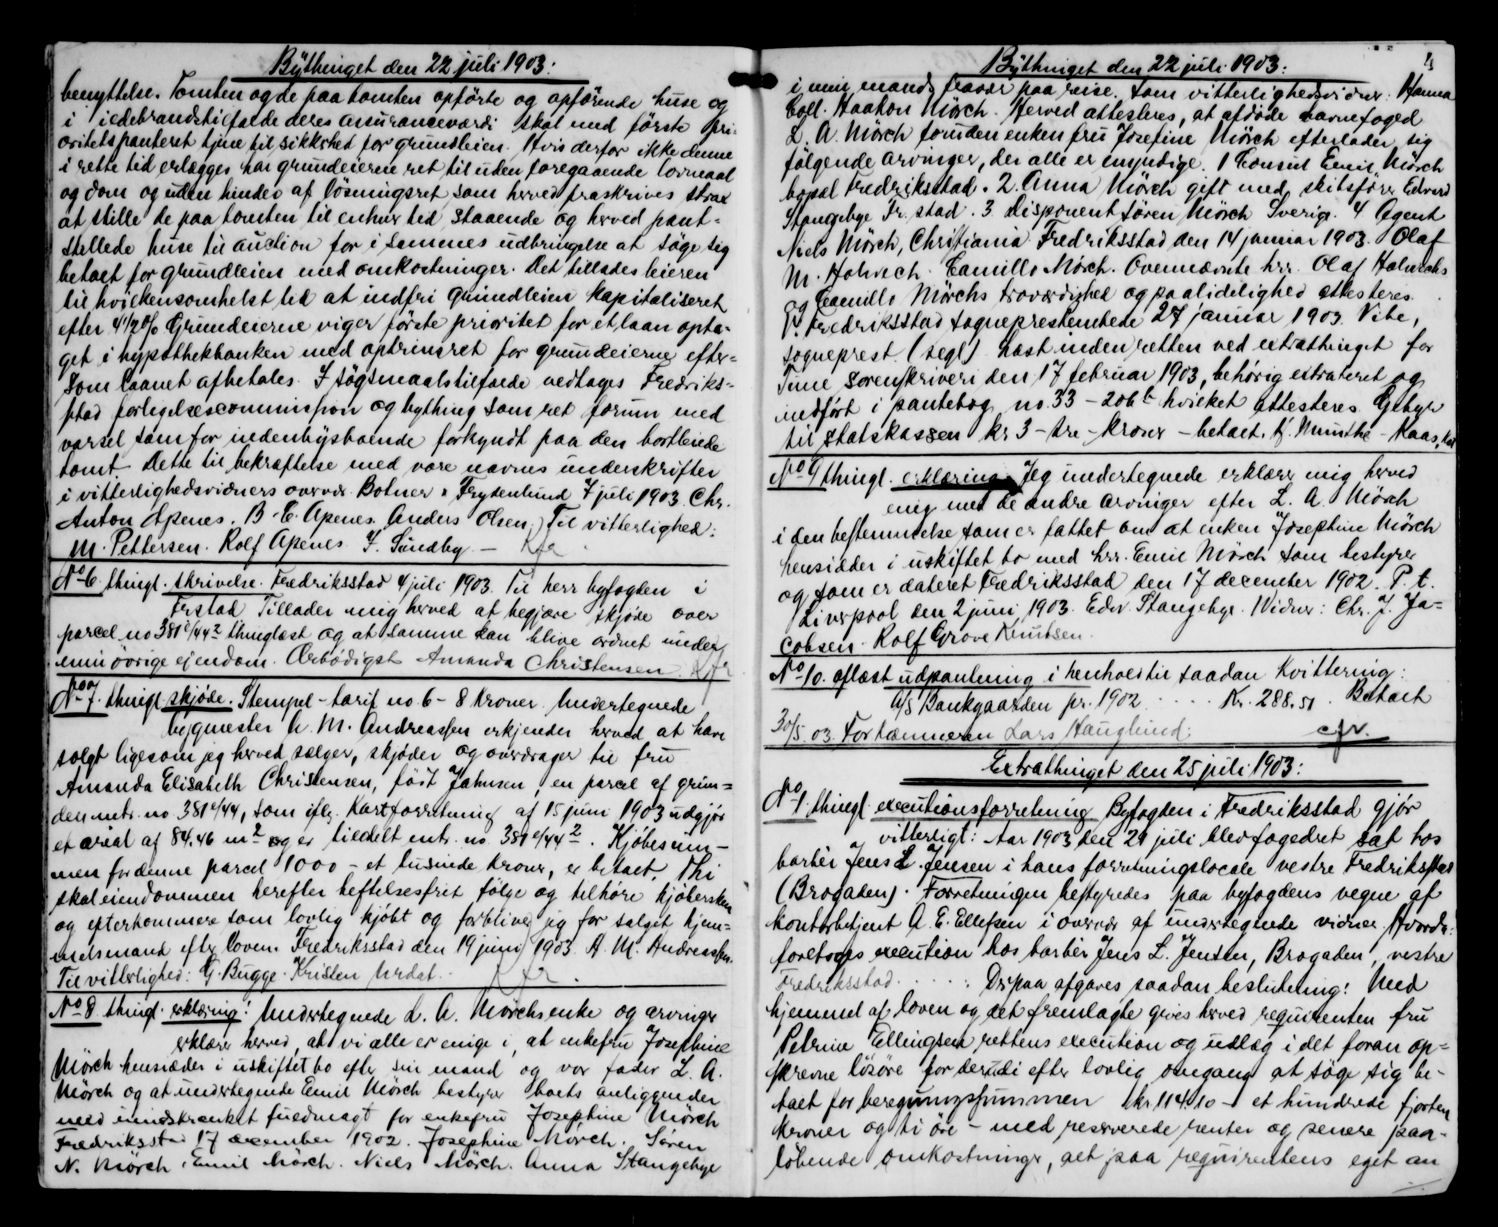 Bythinget den 22 juli 1903:
benyttelse. Tomten og de paa tomten opförte og opförende huse og
i ildebrandstilfælde deres assuranceværdi skal med förste pri-
oritets panteret tjene til sikkehed for grundleien. Hvis derfor ikke denne
i rette tid erlægges har grundeierne ret til uden foregaaende lovmaal
og dom og uden hinder af lösningsret som herved fraskrives strax
at stille de paa tomten til enhver tid staaende og herved pant-
stillede huse til auction for i sammes udbringelse at söge sig
betalt for grundleien med omkostninger. Det tillades leieren
til hvilkensomhelst tid at indfri grundleien kapitaliseret
efter 4 1/2 % Grundeierne viger förste prioritet for et laan opta-
get i hypothekbanken med optrinsret for grundeierne efter-
som laanet afbetales. I sögsmaalstilfælde vedtages Fredriks-
stad forligelsescommission og bything som ret forum med
varsel som for indenbysboende forkyndt paa den bortleiede
tomt. Dette til bekræftelse med vore navnes underskrifter
i vitterlighedsvidners overvær. Botner & Frydenlund 7 juli 1903. Chr.
Anton Apenes. B. E. Apenes. Anders Olsen. Til vitterlighed:
M. Pettersen. Rolf Apenes. F. Sundby. —
No 6 thingl. skrivelse. Fredriksstad 4 juli 1903. Til herr byfogden i
Frstad Tillader mig herved at begjære skjöde over
parcel no 381 e/44 2 thinglæst og at samme kan blive ordnet under
min övrige eiendom. Ærbödigst Amanda Christensen
No 7. thingl. skjöde. Stempel-tarif no 6 – 8 kroner. Undertegnede
bygmester A. M. Andreassen erkjender herved at have
solgt ligesom jeg herved sælger, skjöder og overdrager til fru
Amanda Elisabeth Christensen, födt Jahnsen, en parcel af grun-
den mtr. no 381 e/44, som iflg. kartforretning af 15 juni 1903 udgjör
et areal af 84.46 m2 og er tildelt mtr. no. 381 e/44 2. Kjöbesum-
men for denne parcel 1000 – et tusinde kroner, er betalt. Thi
skal eiendommen herefter heftelsesfrit fölge og tilhöre kjöbersken
og efterkommere som lovlig kjöbt og forbliver jeg for salget hjem-
melsmand efter loven. Fredriksstad den 19 juni 1903. A. M. Andreassen.
Til vitterlighed: G. Bugge. Kristen
No 8 thingl. erklæring: Undertegnede L. A. Mörchs enke og arvinger
erklærer herved, at vi alle er enige i, at enkefru Josephine
Mörch hensidder i uskiftet bo efter sin mand og vor fader L. A.
Mörch og at undertegnede Emil Mörch bestyrer boets anliggender
med uindskrænket fuldmagt for enkefru Josephine Mörch
Fredriksstad 17 december 1902. Josephine Mörch. Sören
N. Mörch. Emil Mörch. Niels Mörch. Anna Stangebye
Bythinget den 22 juli 1903:
i min mands fravær paa reise. Som vitterlighedsvidner: Hanna
Coll. Haakon Mörch. Herved attesteres, at afdöde havnefoged
L. A. Mörch foruden enken fru Josefine Mörch efterlader sig
fölgende arvinger, der alle er myndige. 1 Consul Emil Mörch
bopæl Fredriksstad. 2. Anna Mörch gift med skibsförer Edvard
Stangebye Fr.stad. 3 Disponent Sören Mörch Sverige. 4 Agent
Niels Mörch, Christiania Fredriksstad den 14 januar 1903. Olaf
M. Holwech. Camillo Mörch. Ovennævnte hrr. Olaf Holwechs
og Camillo Mörchs troværdighed og paalidelighed attesteres.
Fredriksstad sogneprestembede 27 januar 1903. Vibe,
sogneprest (segl) Læst inden retten ved extrathinget for
Tune sorenskriveri den 17 februar 1903, behörig extraheret og
indfört i pantebog no. 33 – 206 b hvilket attesteres. Gebyr
til statskassen kr 3 – tre – kroner – betalt. Hj. Munthe-Kaas,
No 9 thingl. erklæring. Jeg undertegnede erklærer mig herved
enig med de andre arvinger efter L. A. Mörch
i den bestemmelse som er fattet om at enken Josephine Mörch
hensidder i uskiftet bo med hrr. Emil Mörch som bestyrer
og som er dateret Fredriksstad den 17 december 1902. P. t.
Liverpool den 2 juni 1903. Edv. Stangebye. Vidner: Chr. J. Ja-
cobsen. Rolf Grove Knutsen.
No 10. aflæst udpantning i henhold til saadan kvittering:
A/S Bankgaarden pr. 1902 . . . . Kr. 288.51. Betalt
30/5.03. For kæmneren Lars Hauglund.
Extrathinget den 25 juli 1903:
No 1. thingl. executionsforretning. Byfogden i Fredriksstad gjör
vitterligt: Aar 1903 den 21 juli blev fogedret sat hos
barbér Jens L. Jensen i hans forretningslocale vestre Fredriksstad
(Brogaden). Forretningen bestyredes paa byfogdens vegne af
kontorbetjent A. E. Ellefsen i overvær af undertegnede vidner. Hvorda:
foretoges execution hos barbér Jens L. Jensen, Brogaden, vestre
Fredriksstad . . . . . Derpaa afgaves saadan beslutning: Med
hjemmel af loven og det fremlagte gives herved requirenten fru
Petrine Ellingsen rettens execution og udlæg i det foran op-
skrevne lösöre for derudi efter lovlig omgang at söge sig be-
talt for beregningssummen kr. 114.10 – et hundrede fjorten
kroner og ti öre – med reserverede renter og senere paa-
löbende omkostninger, alt paa requirentens eget an